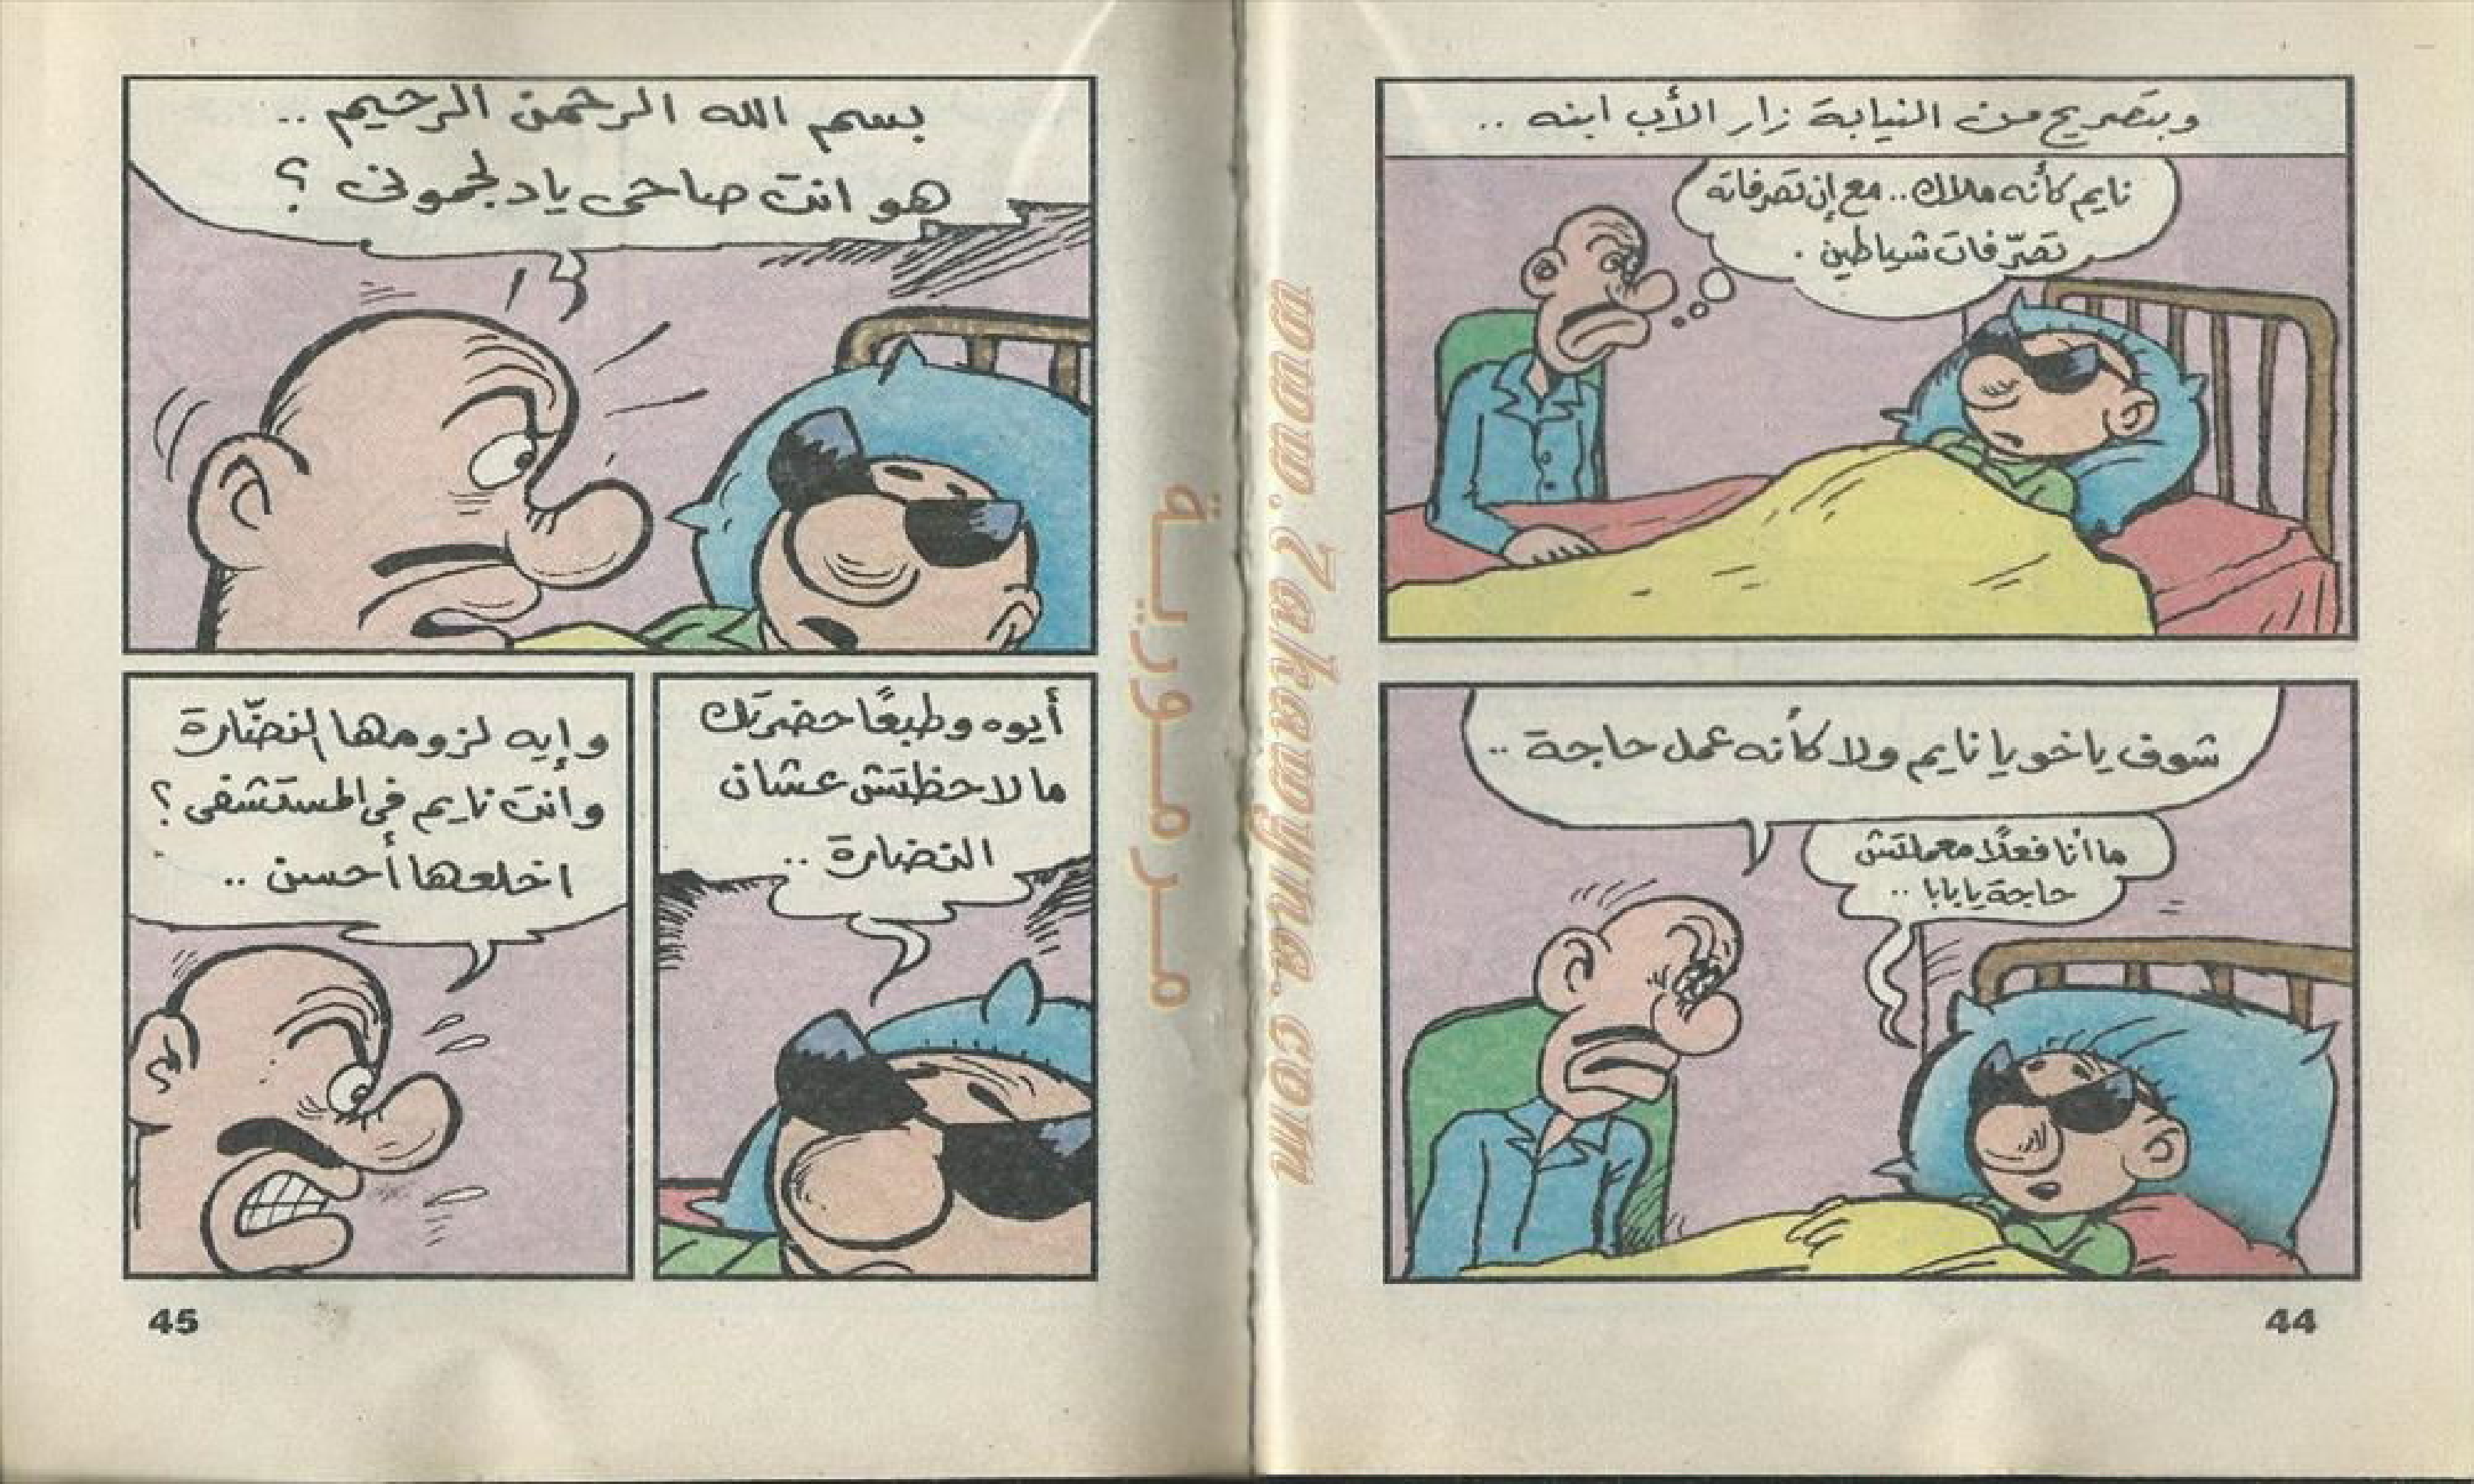 وبتصريح من النيابة زار الأب ابنه ..
نايم كأنه ملاك .. مع إن تصرفاته
تصرّفات شياطين .
شوف ياخويا نايم ولا كأنه عمل حاجة ..
ما أنا فعلًا معملتش
حاجة يا بابا ..
44
بسم الله الرحمن الرحيم ..
هو انت صاحى ياد لجمونى ؟
أيوه وطبعًا حضرتك
ما لاحظتش عشان
النضارة ..
وإيه لزومها النضّارة
وأنت نايم فى المستشفى ؟
اخلعها أحسن ..
45
مرمورية
www.Zakawyna.com